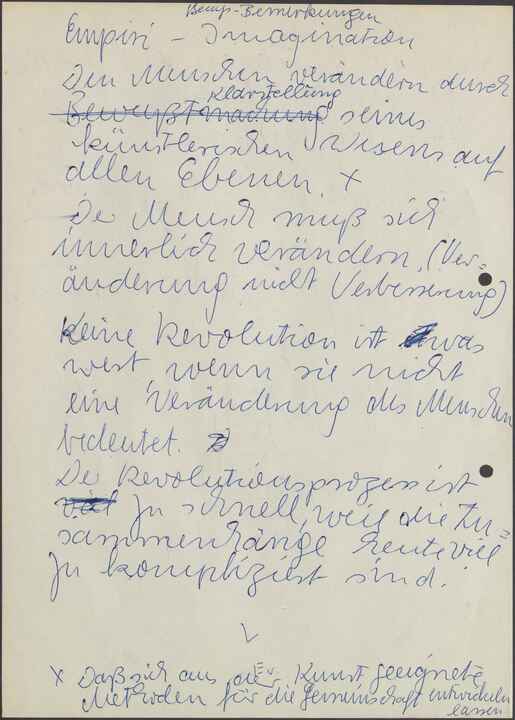 Bemerkungen
Empiri - Imagination
Den Menschen verändern durch
Klarstellung
Bewußtmachung seines
künstlerischen Wesens auf
allen Ebenen. x
De Mensch muß sich
innerlich verändern, (Ver=
änderung nicht Verbesserung)
Keine Revolution ist etwas
wert, wenn sie nicht
eine Veränderung des Menschen
bedeutet.
De Revolutionsprozess ist
viel zu schnell, weil die Zu=
sammenhänge heute viel
zu kompliziert sind.
x Daß sich aus der Kunst geeignete
Methoden für die Gemeinschaft entwickeln
lassen